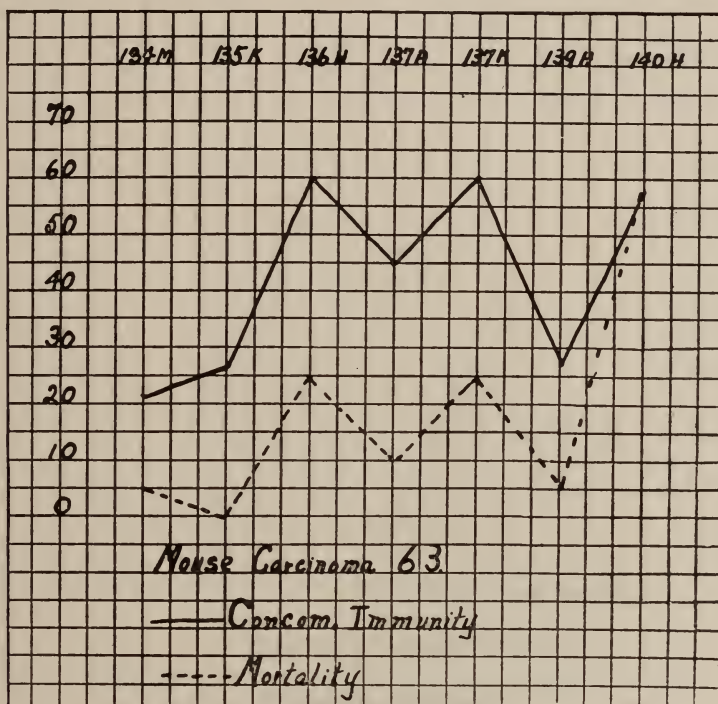 134M 135K 136H 137A 137K 139A 140H
70
60
50
40
30
20
10
0
Mouse Carcinoma 63.
Concom. Immunity
Mortality